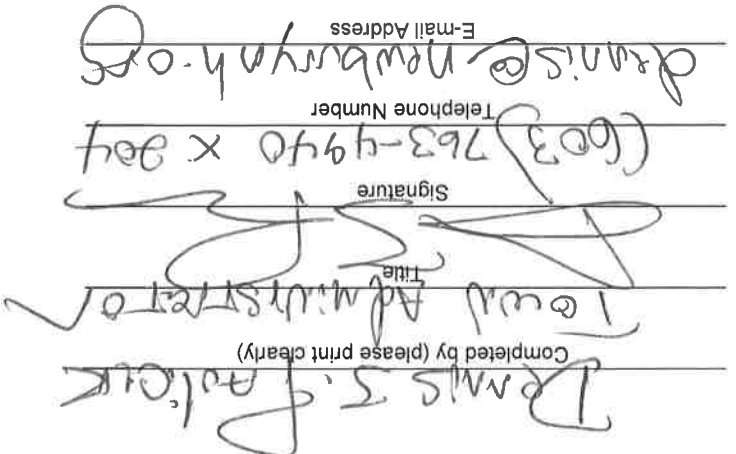 Dennis J. Pavlicek
Completed by (please print clearly)
Town Administrator
Title
Signature
(603) 763-4940 x 204
Telephone Number
dennis@newburynh.org
E-mail Address